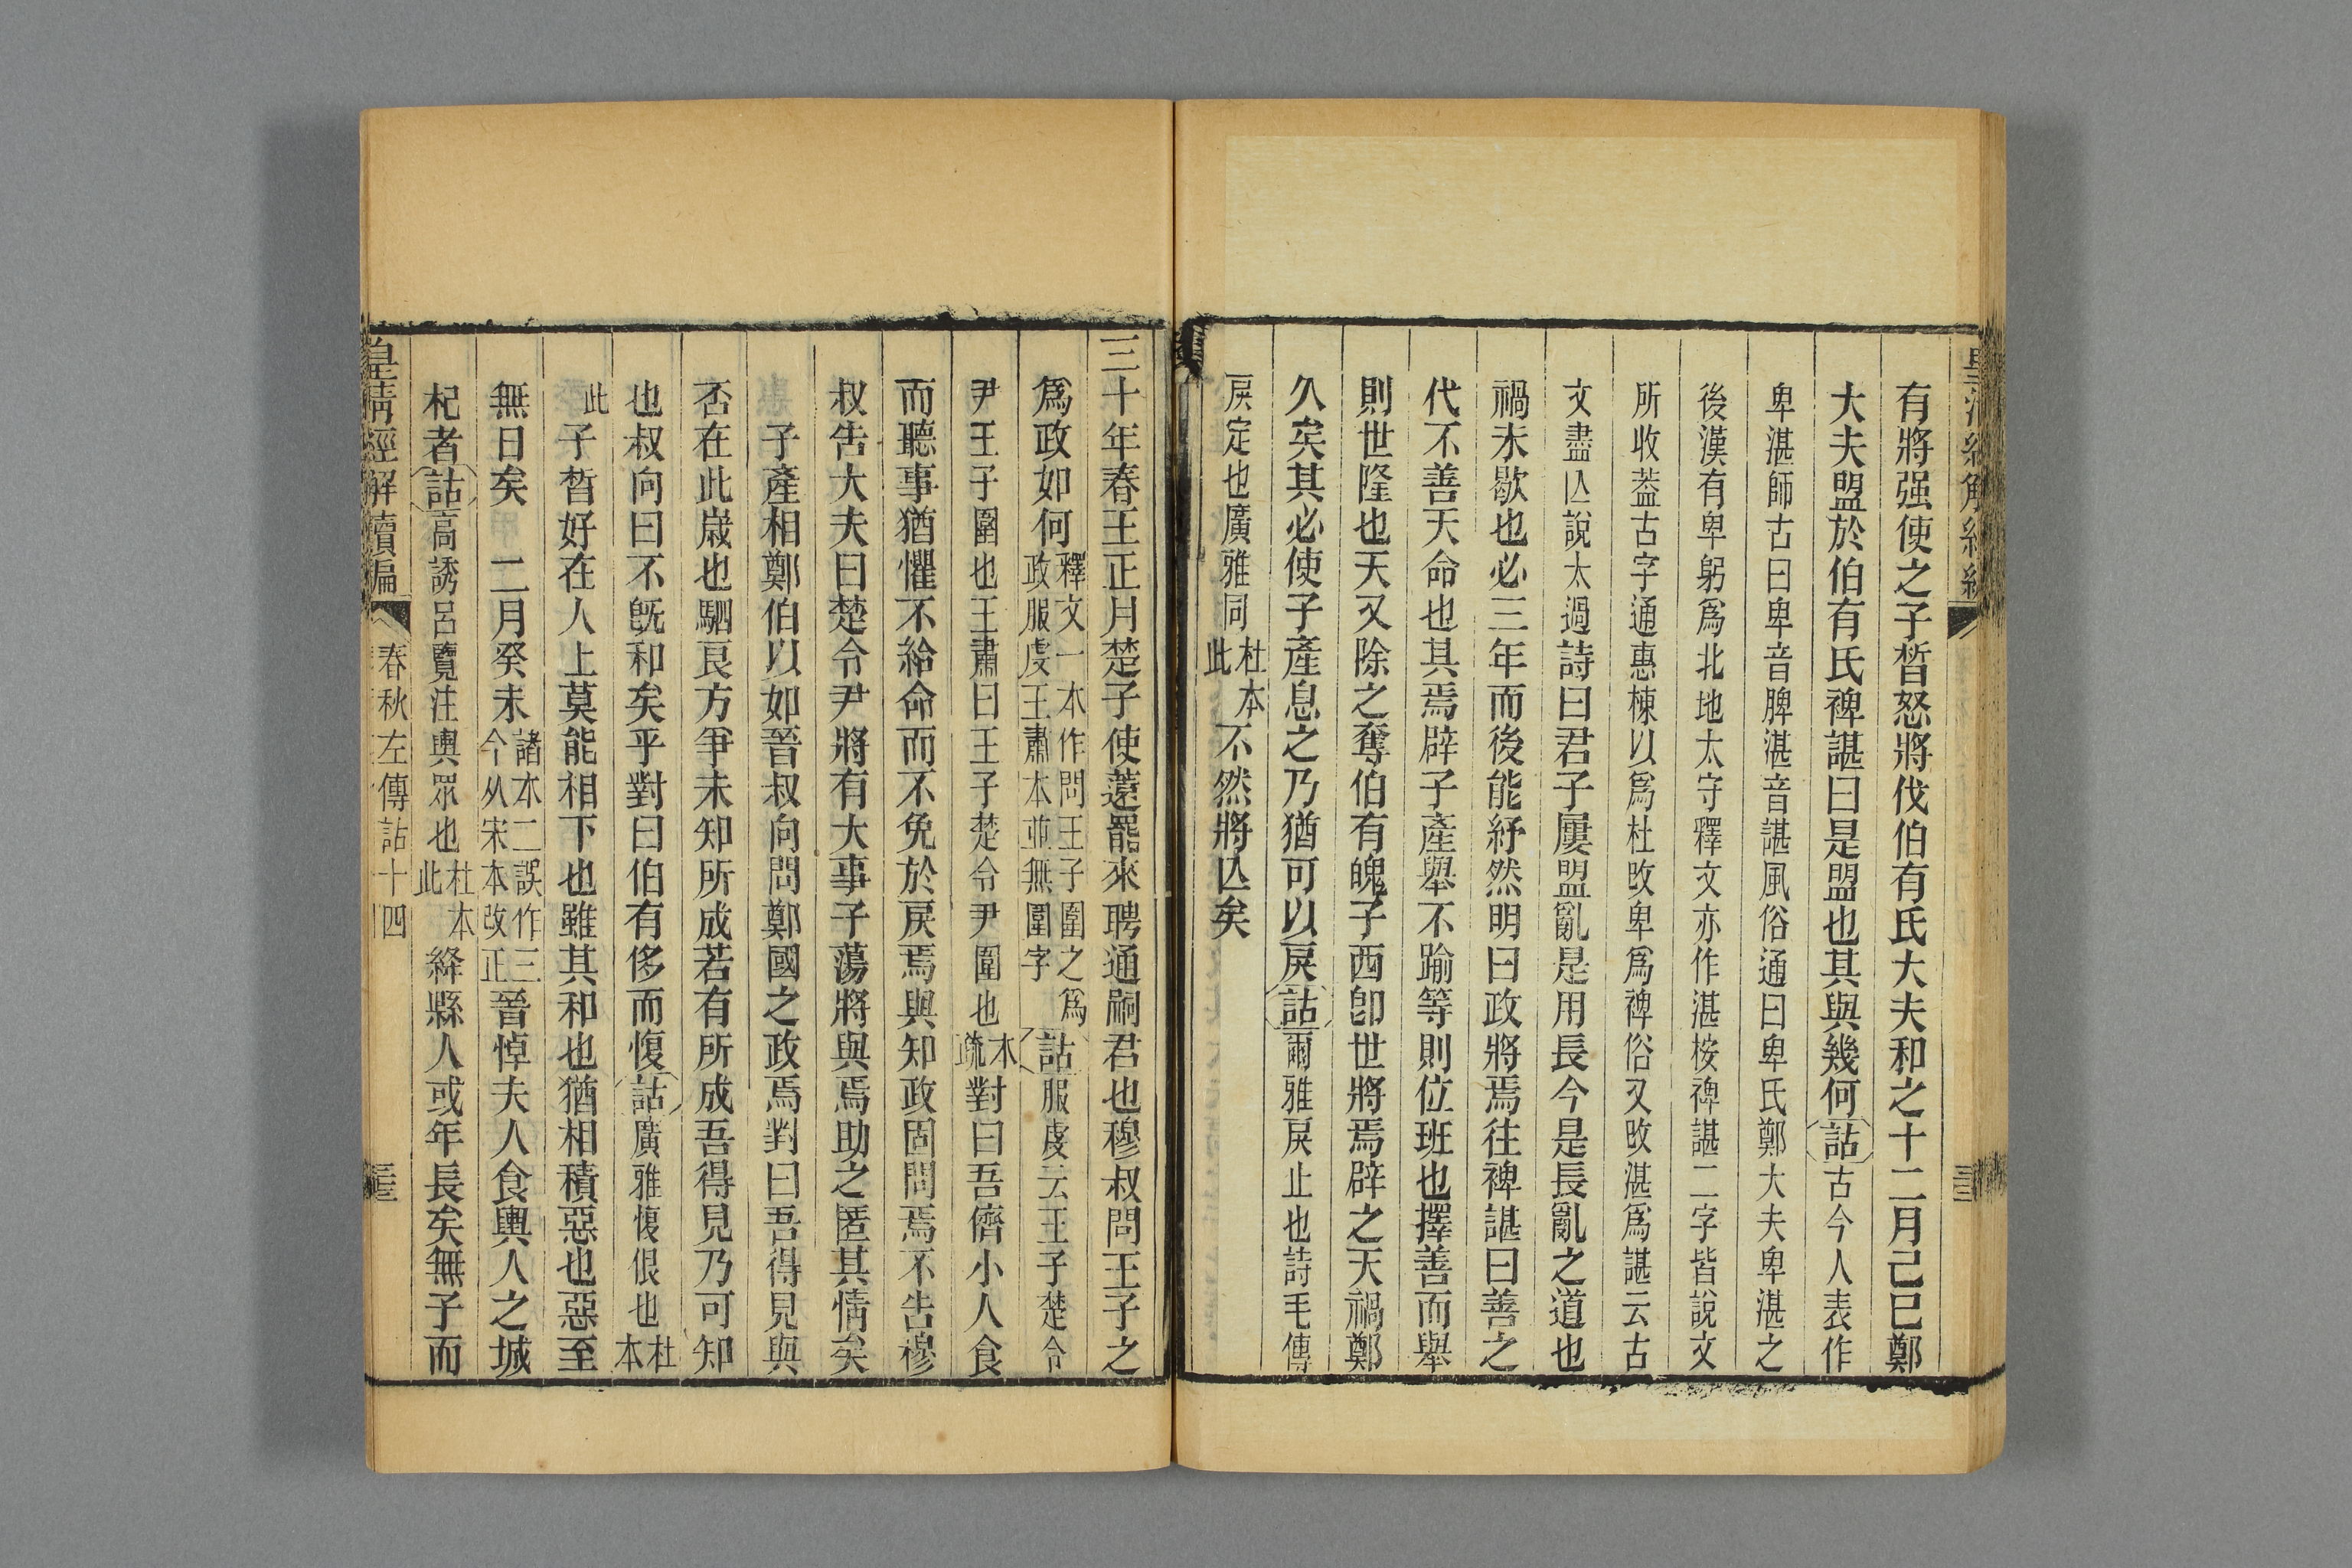 有將强使之子晳怒將伐伯有氏大夫和之十二月己巳鄭
大夫盟於伯有氏裨諶曰是盟也其與幾何詁古今人表作
卑湛師古曰卑音脾湛音諶風俗通曰卑氏鄭大夫卑湛之
後漢有卑躬爲北地太守釋文亦作湛桉裨諶二字皆說文
所收葢古字通惠棟以爲杜攺卑爲裨俗又攺湛爲諶云古
文盡亾說太過詩曰君子屢盟亂是用長今是長亂之道也
禍未歇也必三年而後能紓然明曰政將焉往裨諶曰善之
代不善天命也其焉辟子產舉不踰等則位班也擇善而舉
則世隆也天又除之奪伯有魄子西卽世將焉辟之天禍鄭
久矣其必使子產息之乃猶可以戾詁爾雅戾止也詩毛傳
戾定也廣雅同杜本此不然將亾矣
三十年春王正月楚子使薳罷來聘通嗣君也穆叔問王子之
爲政如何釋文一本作問王子圍之爲政服虔王肅本並無圍字詁服虔云王子楚令
尹王子圍也王肅曰王子楚令尹圍也本疏對曰吾儕小人食
而聽事猶懼不給命而不免於戾焉與知政固問焉不告穆
叔告大夫曰楚令尹將有大事子蕩將與焉助之匿其情矣
子產相鄭伯以如晉叔向問鄭國之政焉對曰吾得見與
否在此嵗也駟良方爭未知所成若有所成吾得見乃可知
也叔向曰不旣和矣乎對曰伯有侈而愎詁廣雅愎佷也杜本
此子晳好在人上莫能相下也雖其和也猶相積惡也惡至
無日矣 二月癸未諸本二誤作三今从宋本改正晉悼夫人食輿人之城
杞者詁高誘呂覽注輿眾也杜本此絳縣人或年長矣無子而
皇淸經解續編 春秋左傳詁十四